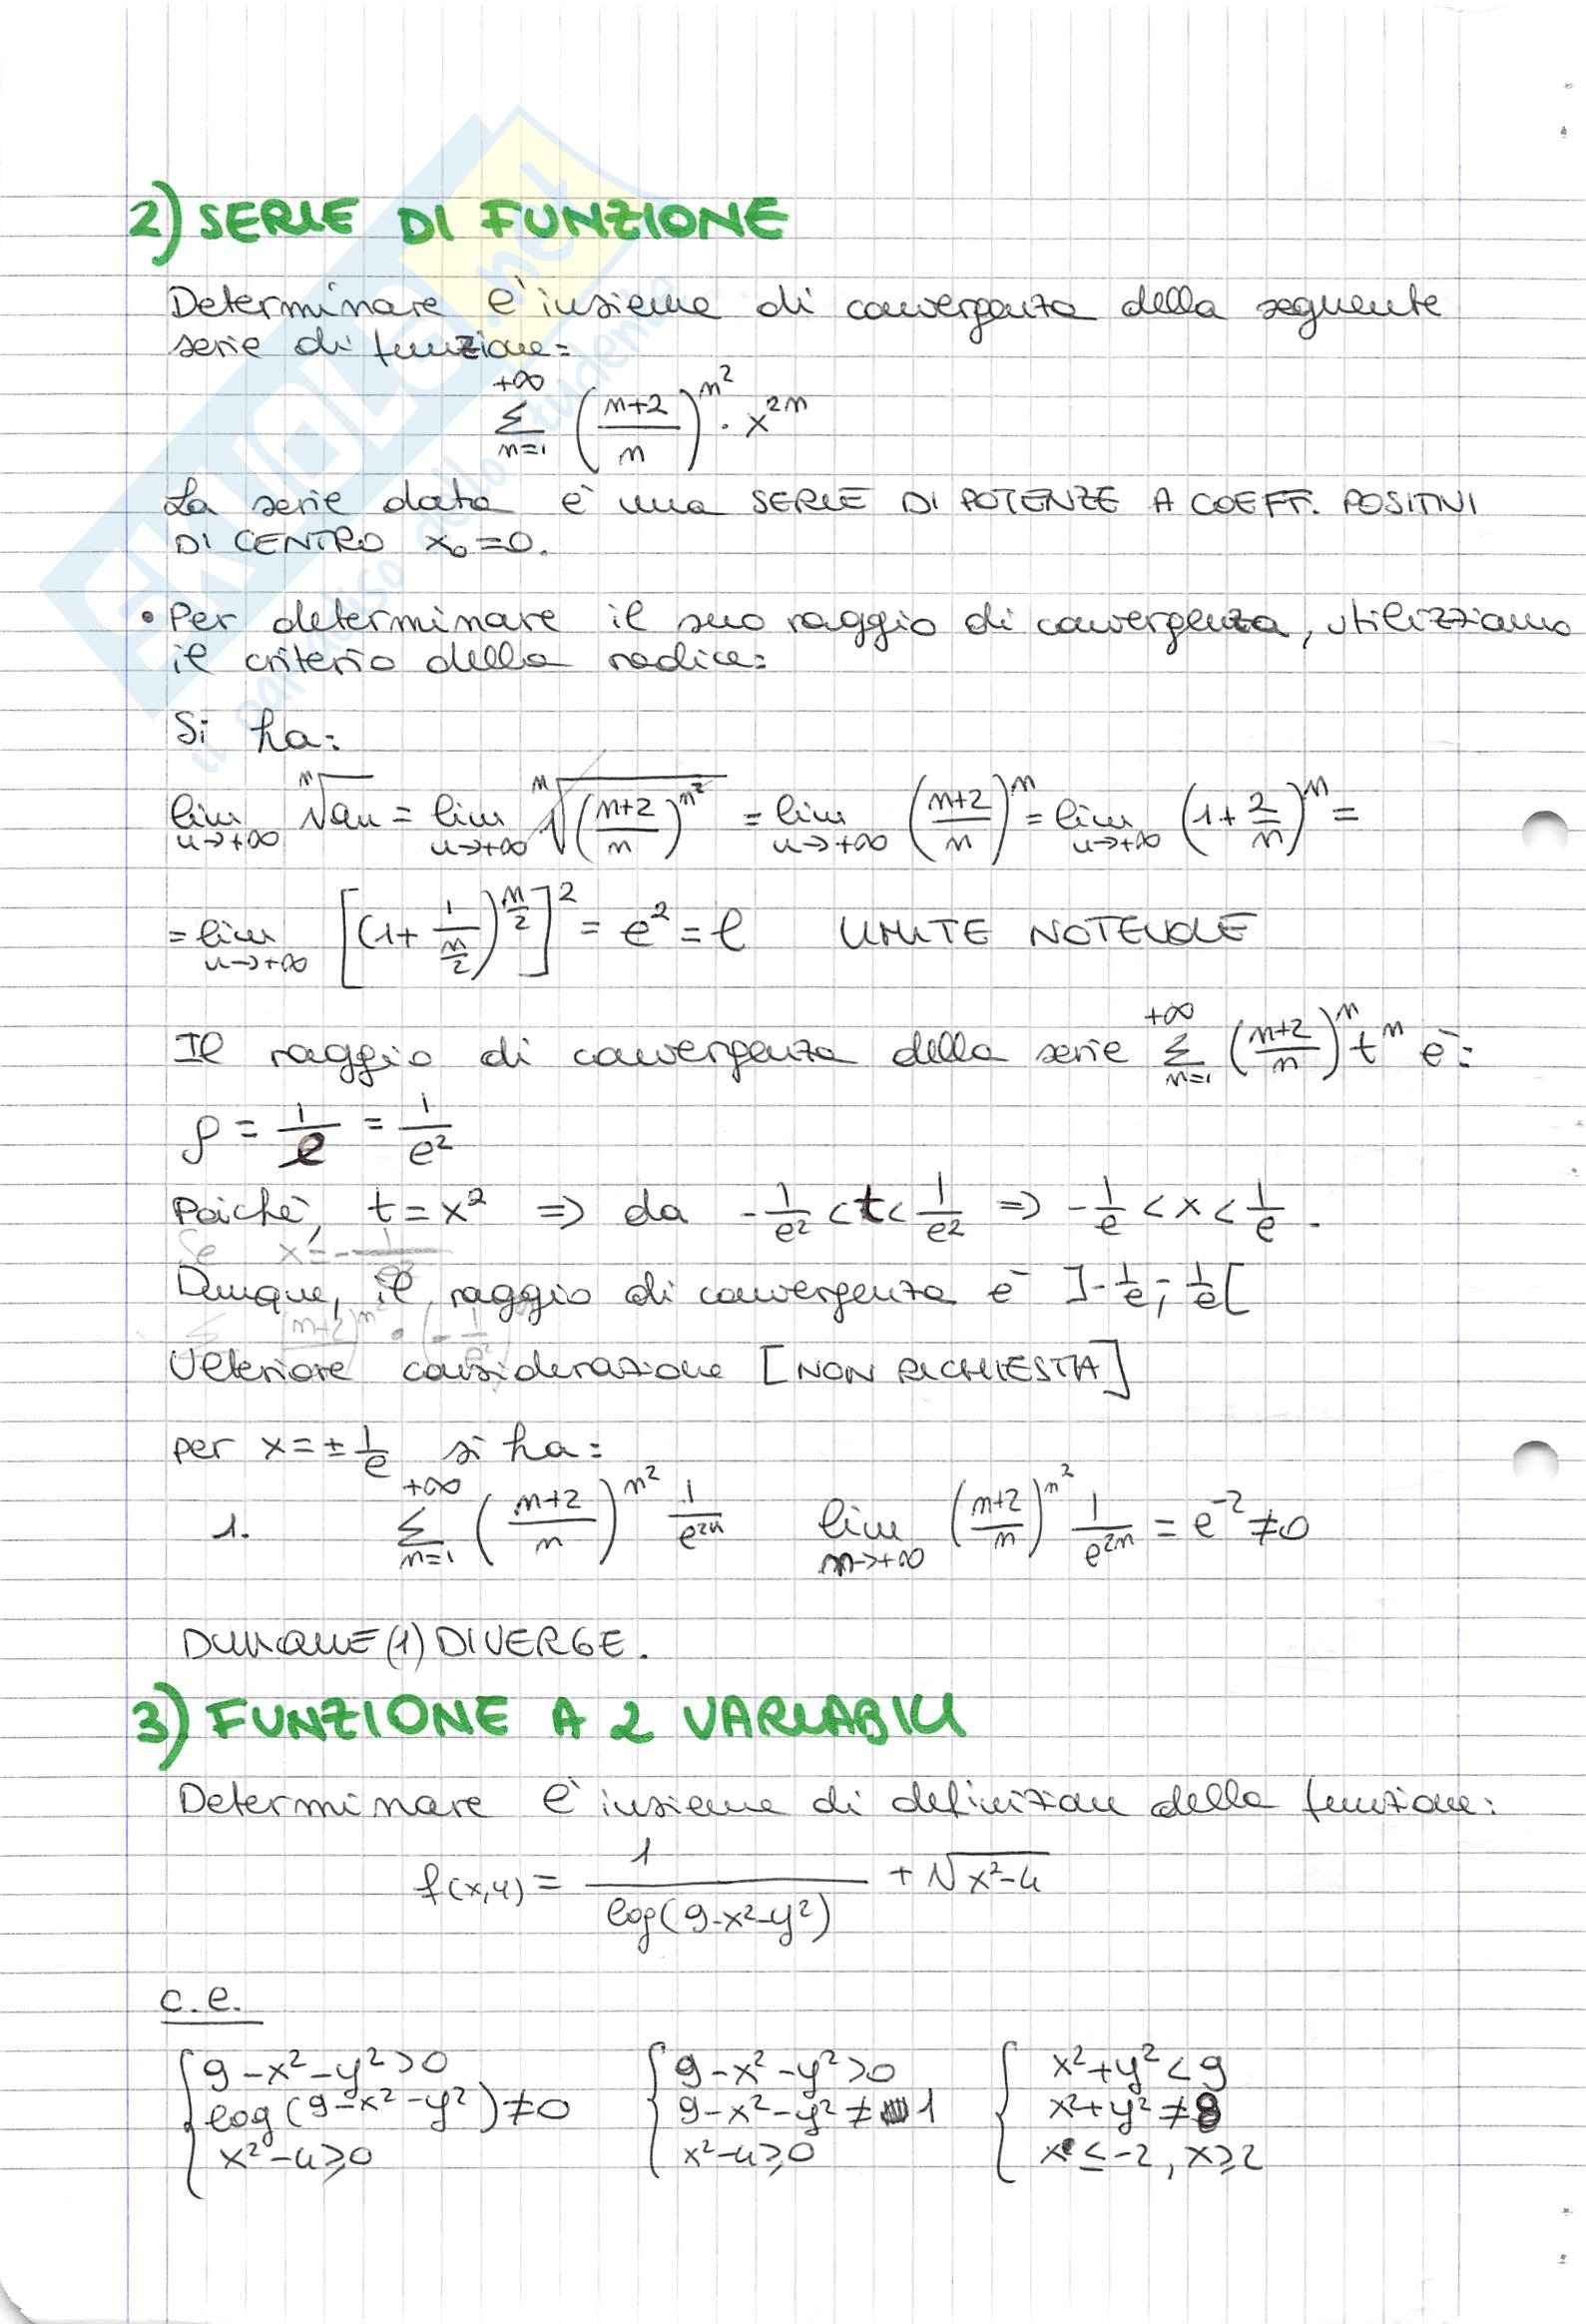 2) SERIE DI FUNZIONE
Determinare l'insieme di convergenza della seguente
serie di funzione:
+∞
∑ ((n+2)/n)^(n²) · x^(2n)
n=1
La serie data è una SERIE DI POTENZE A COEFF. POSITIVI
DI CENTRO x₀=0.
• Per determinare il suo raggio di convergenza, utilizziamo
il criterio della radice:
Si ha:
lim n→+∞ ⁿ√an = lim n→+∞ ⁿ√((n+2)/n)^(n²) = lim n→+∞ ((n+2)/n)^n = lim n→+∞ (1+2/n)^n =
= lim n→+∞ [(1+1/(n/2))^(n/2)]² = e² = l LIMITE NOTEVOLE
Il raggio di convergenza della serie ∑ n=1 +∞ ((n+2)/n)^n t^n è:
ρ = 1/l = 1/e²
Poiché, t=x² => da -1/e² < t < 1/e² => -1/e < x < 1/e .
Dunque, il raggio di convergenza è ]-1/e; 1/e[
Ulteriore considerazione [NON RICHIESTA]
per x=±1/e si ha:
1. ∑ n=1 +∞ ((n+2)/n)^(n²) 1/e^(2n) lim n→+∞ ((n+2)/n)^(n²) 1/e^(2n) = e^(-2) ≠0
DUNQUE (1) DIVERGE.
3) FUNZIONE A 2 VARIABILI
Determinare l'insieme di definizion della funzione:
f(x,y) = 1/log(9-x²-y²) + √(x²-4)
c.e.
{ 9-x²-y²>0 { 9-x²-y²>0 { x²+y²<9
log(9-x²-y²)≠0 9-x²-y²≠1 x²+y²≠8
x²-4≥0 x²-4≥0 x≤-2, x≥2